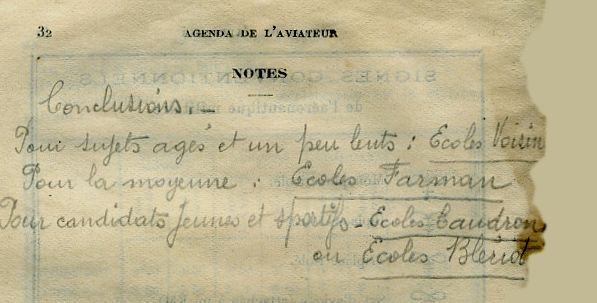 32
AGENDA DE L'AVIATEUR
NOTES
Conclusions. _
Pour sujets agés et un peu lents : Ecoles Voisin
Pour la moyenne : Ecoles Farman
Pour candidats Jeunes et sportifs - Ecoles Caudron
ou Ecoles Blériot